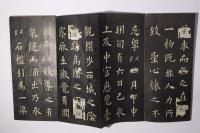 求而在
一物既非人力所
致聖心懷之不
忘粵四月甲申
朔旬有六日己亥
上及中宮歷覽臺
觀閑步西城之陰
高閣之下俯
察厥土微覺有
泉隨而涌出乃承
以石檻引為一渠